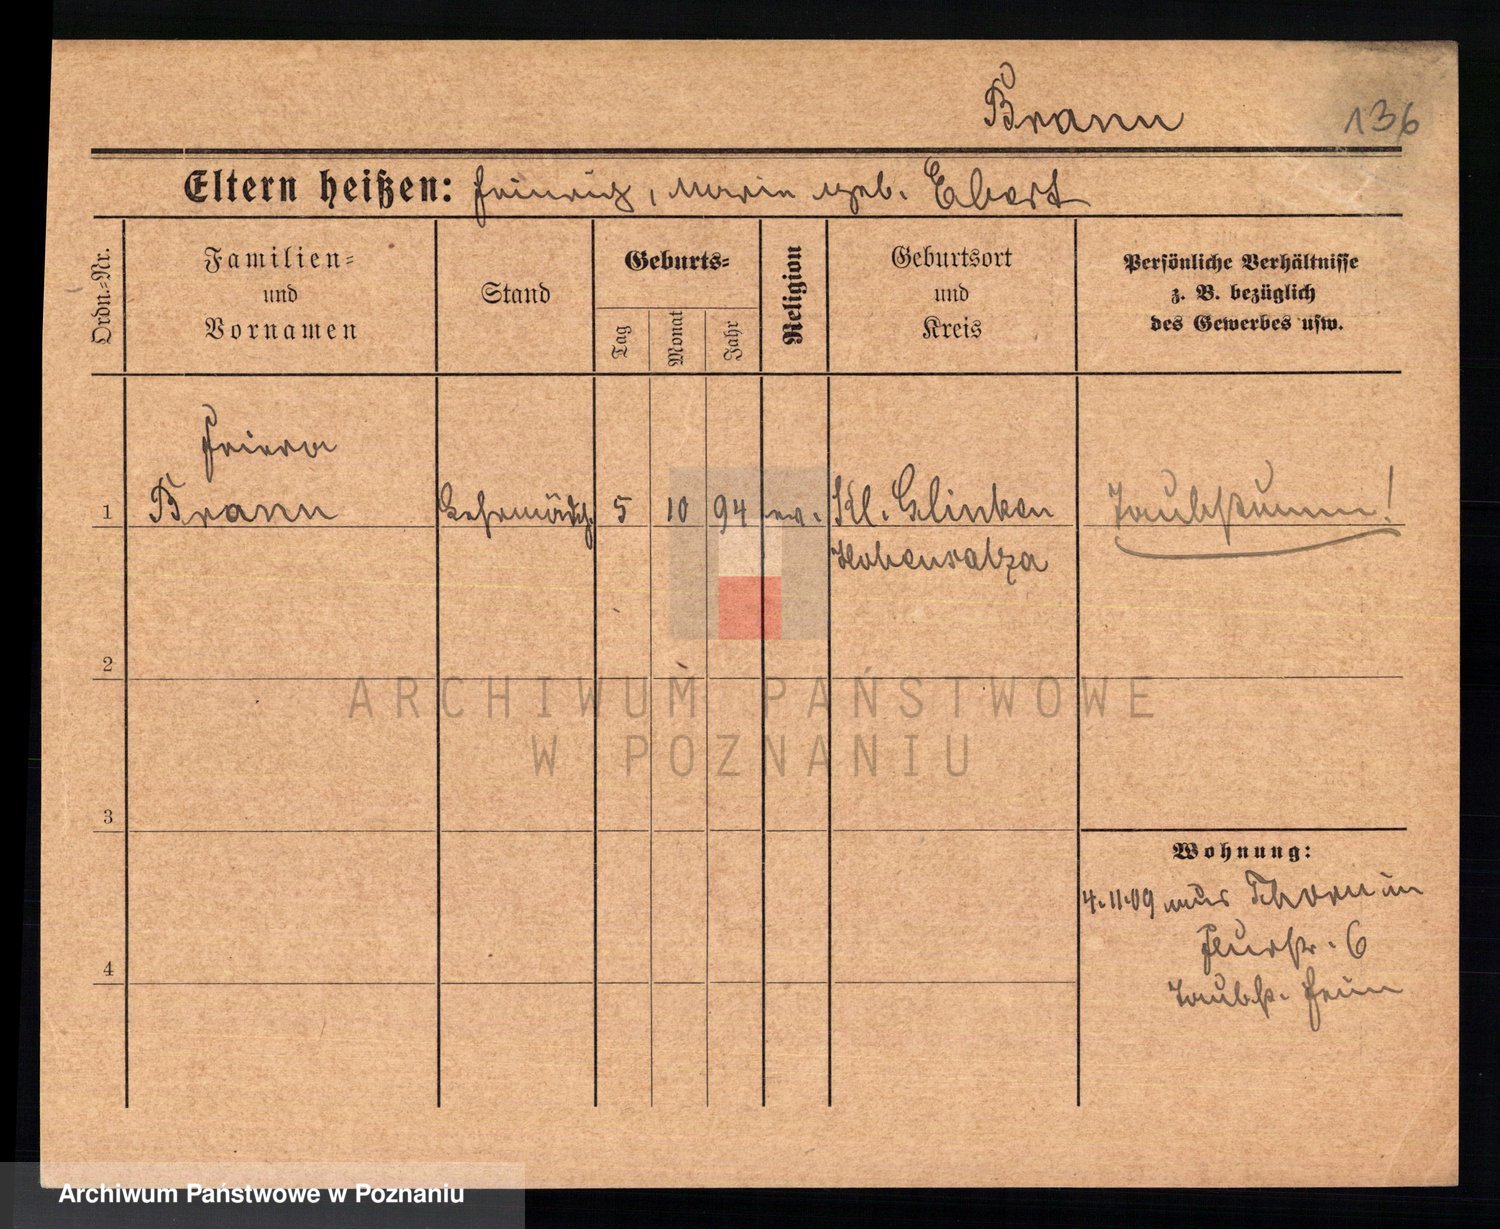 Brann
136
Eltern heißen: Heinrich, Marie geb. Ebert
Ordn.-Nr.
Familien-
und
Vornamen
Stand
Geburts-
Tag
Monat
Jahr
Religion
Geburtsort
und
Kreis
Persönliche Verhältnisse
z. B. bezüglich
des Gewerbes usw.
Brann
1
5
10
94
ev.
Kl. Glinken
Hohensalza
Taubstumm!
2
3
4
Wohnung:
4.11.09 aus Thorn in
Flurstr. 6
Taubst. Heim
ARCHIWUM PAŃSTWOWE
W POZNANIU
Archiwum Państwowe w Poznaniu